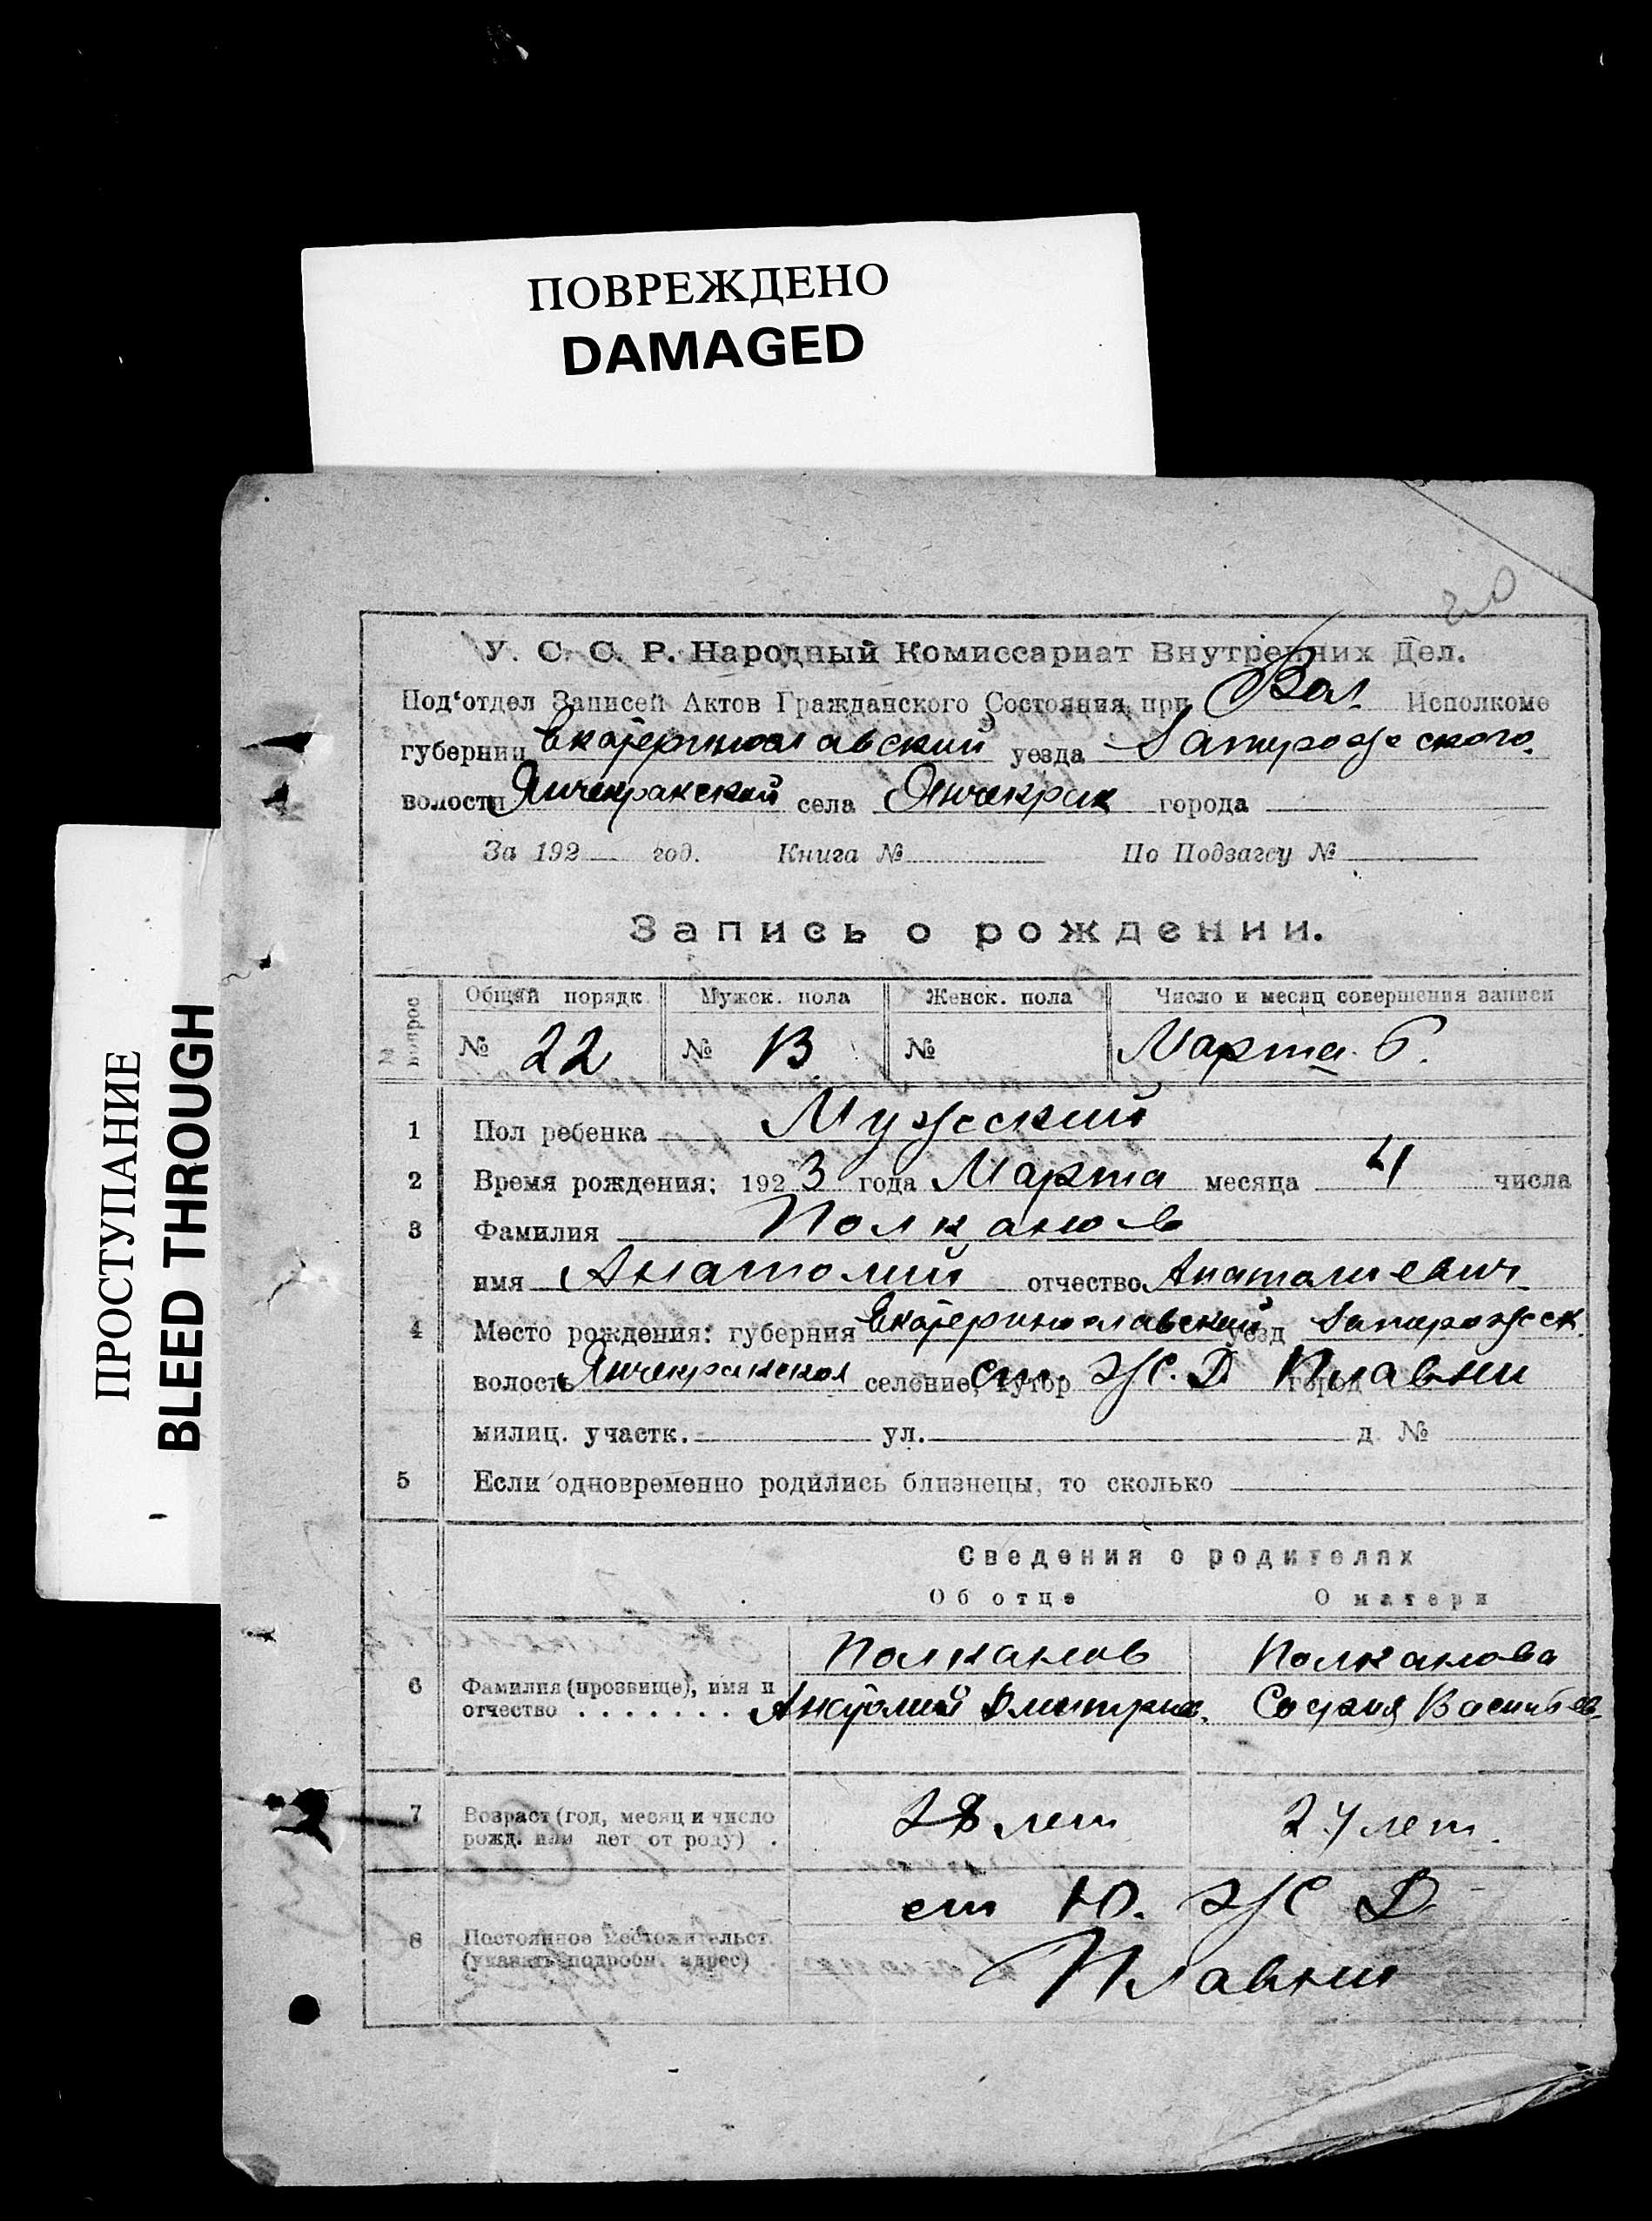 ПОВРЕЖДЕНО
DAMAGED
ПРОСТУПАНИЕ
BLEED THROUGH
20
У. С. С. Р. Народный Комиссариат Внутренних Дел.
Под'отдел Записей Актов Гражданского Состояния при Вол. Исполкоме
губернии Екатеринославский уезда Запорожского
волости Янчекракской села Янчекрак города
За 192 год. Книга № По Подзагсу №
Запись о рождении.
№ вопрос Общий порядк. Мужск. пола Женск. пола Число и месяц совершения записи
№ 22 № 13 № Марта 6.
1 Пол ребенка Мужеский
2 Время рождения: 1923 года Марта месяца 4 числа
3 Фамилия Полканов
имя Анатолий отчество Анатолиевич
4 Место рождения: губерния Екатеринославский уезд Запорожск.
волость Янчекракская селение, хутор ст. Ж. Д город Плавни
милиц. участк. ул. д. №
5 Если одновременно родились близнецы, то сколько
Сведения о родителях
Об отце О матери
6 Фамилия (прозвище), имя и отчество . . . . . . . Полканов Полканова
Анатолий Дмитриев. София Василь ев.
7 Возраст (год, месяц и число рожд. или лет от роду) . 28 лет 24 лет.
8 Постоянное местожительст. (указать подробн. адрес) . ст Ю. Ж Д
Плавни